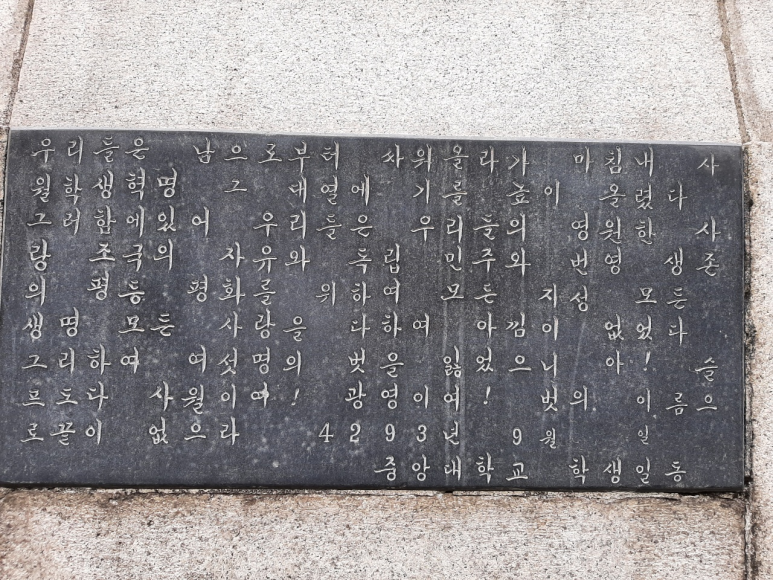 우리들은 남으로부터 싸워올라가 마침내 사
월학생혁명 그 대열에 기를 높이 올렸다
그러한에있어 우리들은 우리들의 영원한 사
랑 조국의 자유와 독립 민주와 번영 생존
의 평등 평화를 위하여 모든 지성 모든
생명 모든 사랑을 다하여 아낌이 없었다
그리하여 여섯명의 벗을 잃었으니 아! 슬
프도다 사월이여! 광영이여! 벗의 이름으
로 끝이 없으라 4293년 9월 일
중앙대학교 학생일동